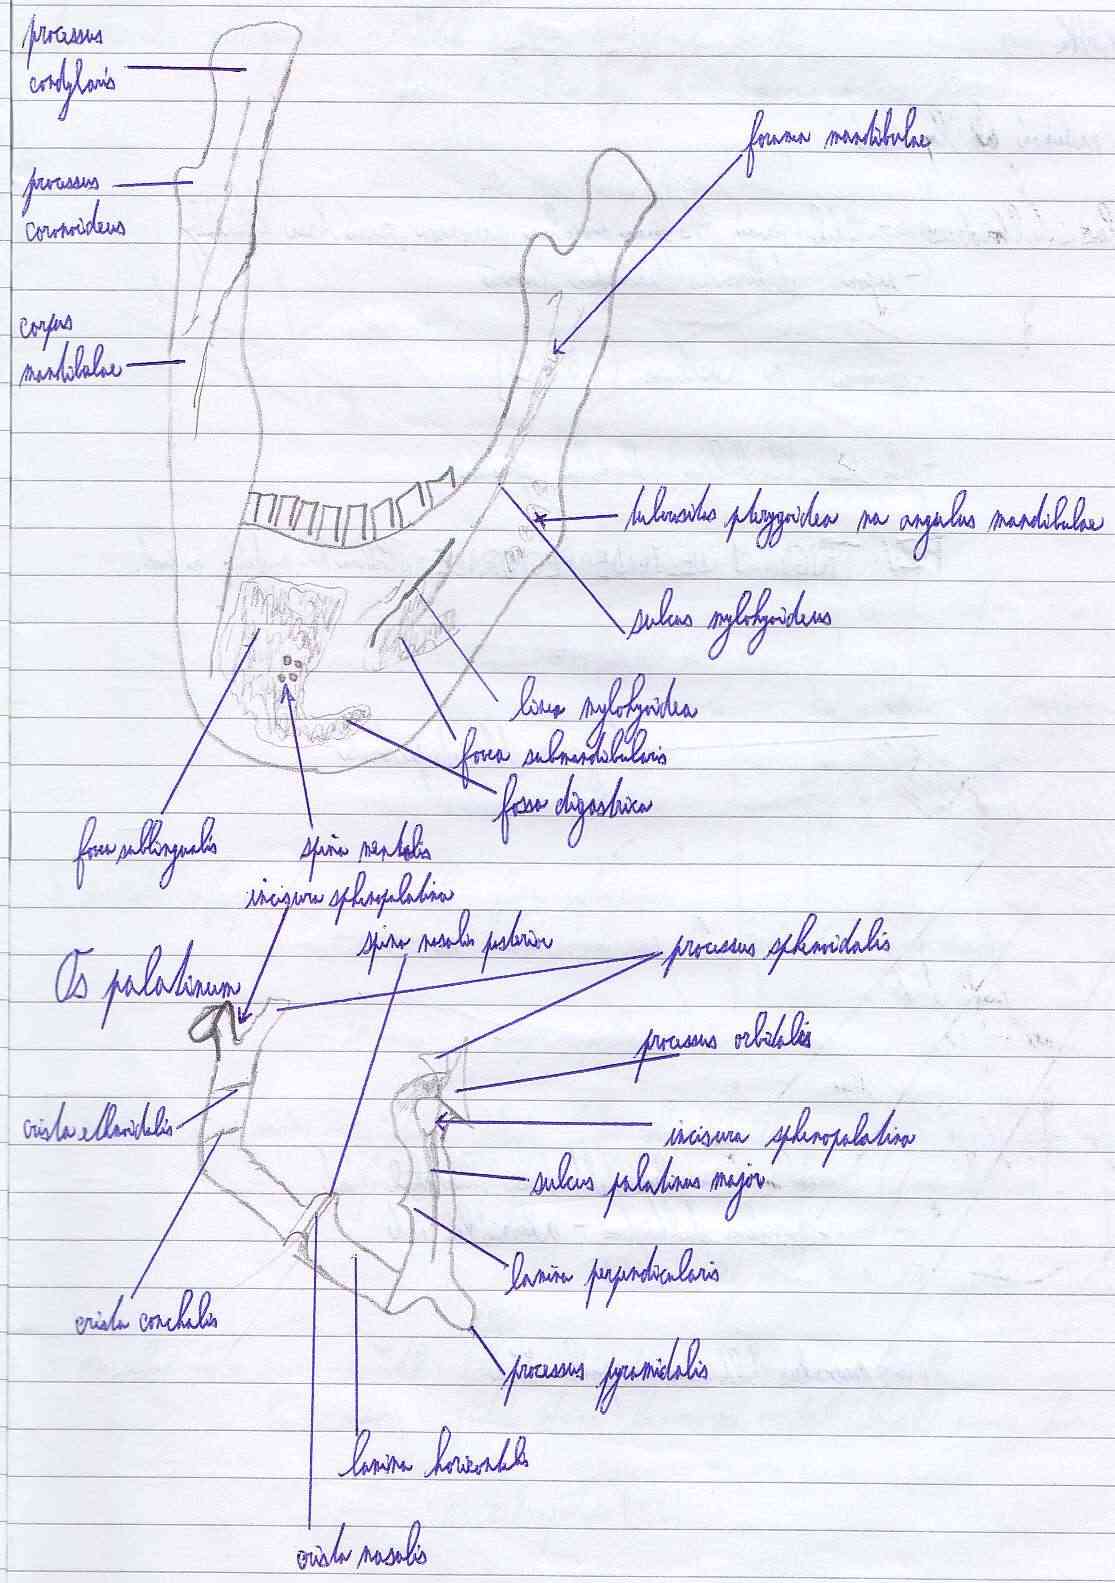 processus
condylaris
foramen mandibulae
processus
coronoideus
corpus
mandibulae
tuberositas pterygoidea na angulus mandibulae
sulcus mylohyoideus
linea mylohyoidea
fovea submandibularis
fossa digastrica
fovea sublingualis
spina mentalis
incisura sphenopalatina
spina nasalis posterior
processus sphenoidalis
Os palatinum
processus orbitalis
crista ethmoidalis
incisura sphenopalatina
sulcus palatinus major
lamina perpendicularis
crista conchalis
processus pyramidalis
lamina horizontalis
crista nasalis